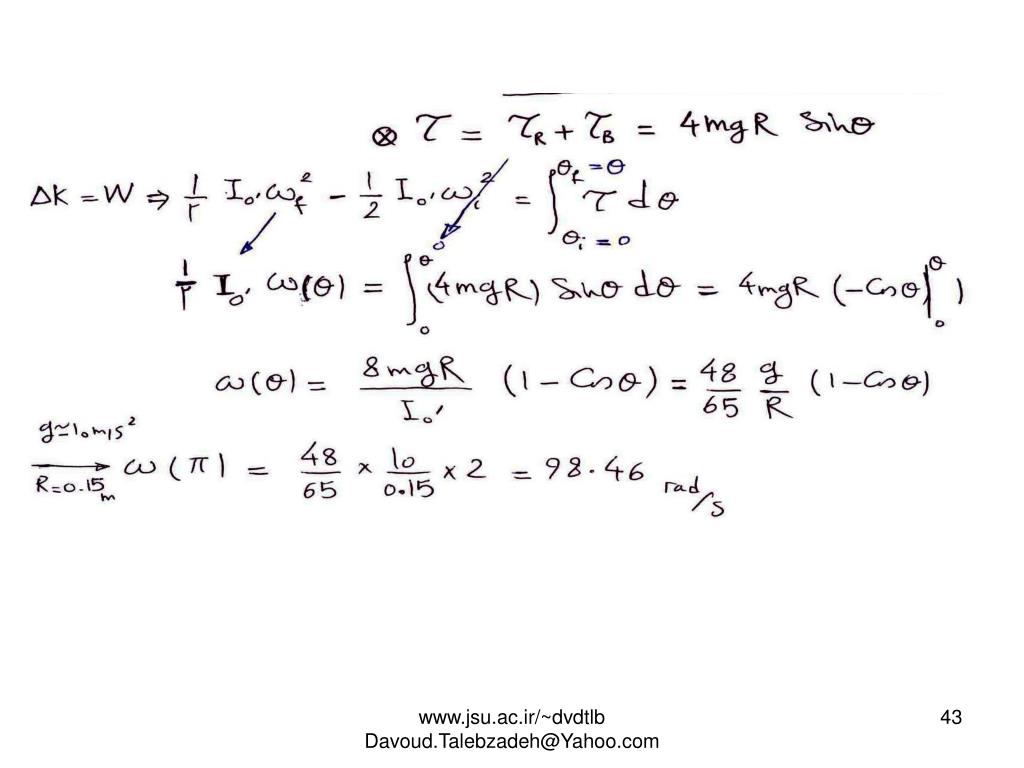 ⊗ τ = τ_R + τ_B = 4mgR Sinθ
ΔK = W ⇒ 1/۲ I₀′ω_f² − 1/2 I₀′ω_i² = ∫_{θ_i = 0}^{θ_f = θ} τ dθ
0
1/۲ I₀′ ω(θ) = ∫₀^θ (4mgR) Sinθ dθ = 4mgR (−Cosθ|₀^θ)
ω(θ) = 8mgR/I₀′ (1 − Cosθ) = 48/65 g/R (1 − Cosθ)
g≃10m/s² R=0.15m → ω(π) = 48/65 × 10/0.15 × 2 = 98.46 rad/s
www.jsu.ac.ir/~dvdtlb
Davoud.Talebzadeh@Yahoo.com
43